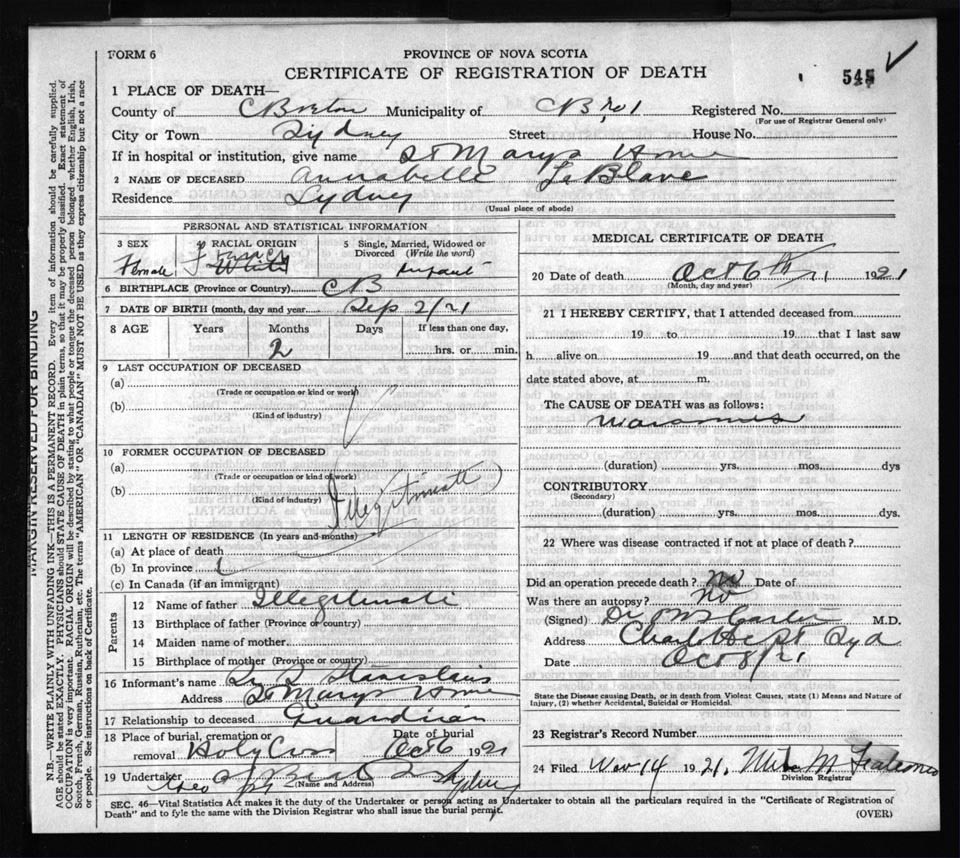 FORM 6
PROVINCE OF NOVA SCOTIA
CERTIFICATE OF REGISTRATION OF DEATH
545
1 PLACE OF DEATH—
County of C Breton Municipality of CB, No 1 Registered No.
(For use of Registrar General only)
City or Town Sydney Street House No.
If in hospital or institution, give name St Marys Home
2 NAME OF DECEASED Annabelle Le Blanc
Residence Sydney
(Usual place of abode)
PERSONAL AND STATISTICAL INFORMATION
3 SEX
Female
4 RACIAL ORIGIN
French
White
5 Single, Married, Widowed or Divorced (Write the word)
Infant
6 BIRTHPLACE (Province or Country) CB
7 DATE OF BIRTH (month, day and year) Sep 2/21
8 AGE Years Months Days If less than one day,
2 hrs. or min.
9 LAST OCCUPATION OF DECEASED
(a)
(Trade or occupation or kind or work)
(b)
(Kind of industry)
10 FORMER OCCUPATION OF DECEASED
(a)
(Trade or occupation or kind of work)
(b)
(Kind of industry)
Illegitimate
11 LENGTH OF RESIDENCE (In years and months)
(a) At place of death
(b) In province
(c) In Canada (if an immigrant)
Parents
12 Name of father Illegitimate
13 Birthplace of father (Province or Country)
14 Maiden name of mother
15 Birthplace of mother (Province or country)
16 Informant's name Stanislaus
Address St Marys Home
17 Relationship to deceased Guardian
18 Place of burial, cremation or removal Holy Cross
Date of burial Oct 6 1921
19 Undertaker Sydney
(Name and Address)
MEDICAL CERTIFICATE OF DEATH
20 Date of death Oct 6th 21 1921
(Month, day and year)
21 I HEREBY CERTIFY, that I attended deceased from
19 to 19 that I last saw
h alive on 19 and that death occurred, on the
date stated above, at m.
The CAUSE OF DEATH was as follows:
Marasmus
(duration) yrs. mos. dys
CONTRIBUTORY
(Secondary)
(duration) yrs. mos. dys
22 Where was disease contracted if not at place of death?
Did an operation precede death? No Date of
Was there an autopsy? No
(Signed) Dr M.D.
Address Charlotte St Syd
Date Oct 8/21
State the Disease causing Death, or in death from Violent Causes, state (1) Means and Nature of
Injury, (2) whether Accidental, Suicidal or Homicidal.
23 Registrar's Record Number
24 Filed Nov 14 1921,
Division Registrar
SEC. 46—Vital Statistics Act makes it the duty of the Undertaker or person acting as Undertaker to obtain all the particulars required in the "Certificate of Registration of
Death" and to fyle the same with the Division Registrar who shall issue the burial permit.
(OVER)
MARGIN RESERVED FOR BINDING
N.B.—WRITE PLAINLY WITH UNFADING INK—THIS IS A PERMANENT RECORD. Every item of information should be carefully supplied.
AGE should be stated EXACTLY. PHYSICIANS should STATE CAUSE OF DEATH in plain terms, so that it may be properly classified. Exact statement of
OCCUPATION is very important. RACIAL ORIGIN will be described by stating to what people or tongue the deceased person belonged whether English, Irish,
Scotch, French, German, Russian, Ruthenian, etc. The terms "AMERICAN" OR "CANADIAN" MUST NOT BE USED as they express citizenship but not a race
or people. See instructions on back of Certificate.